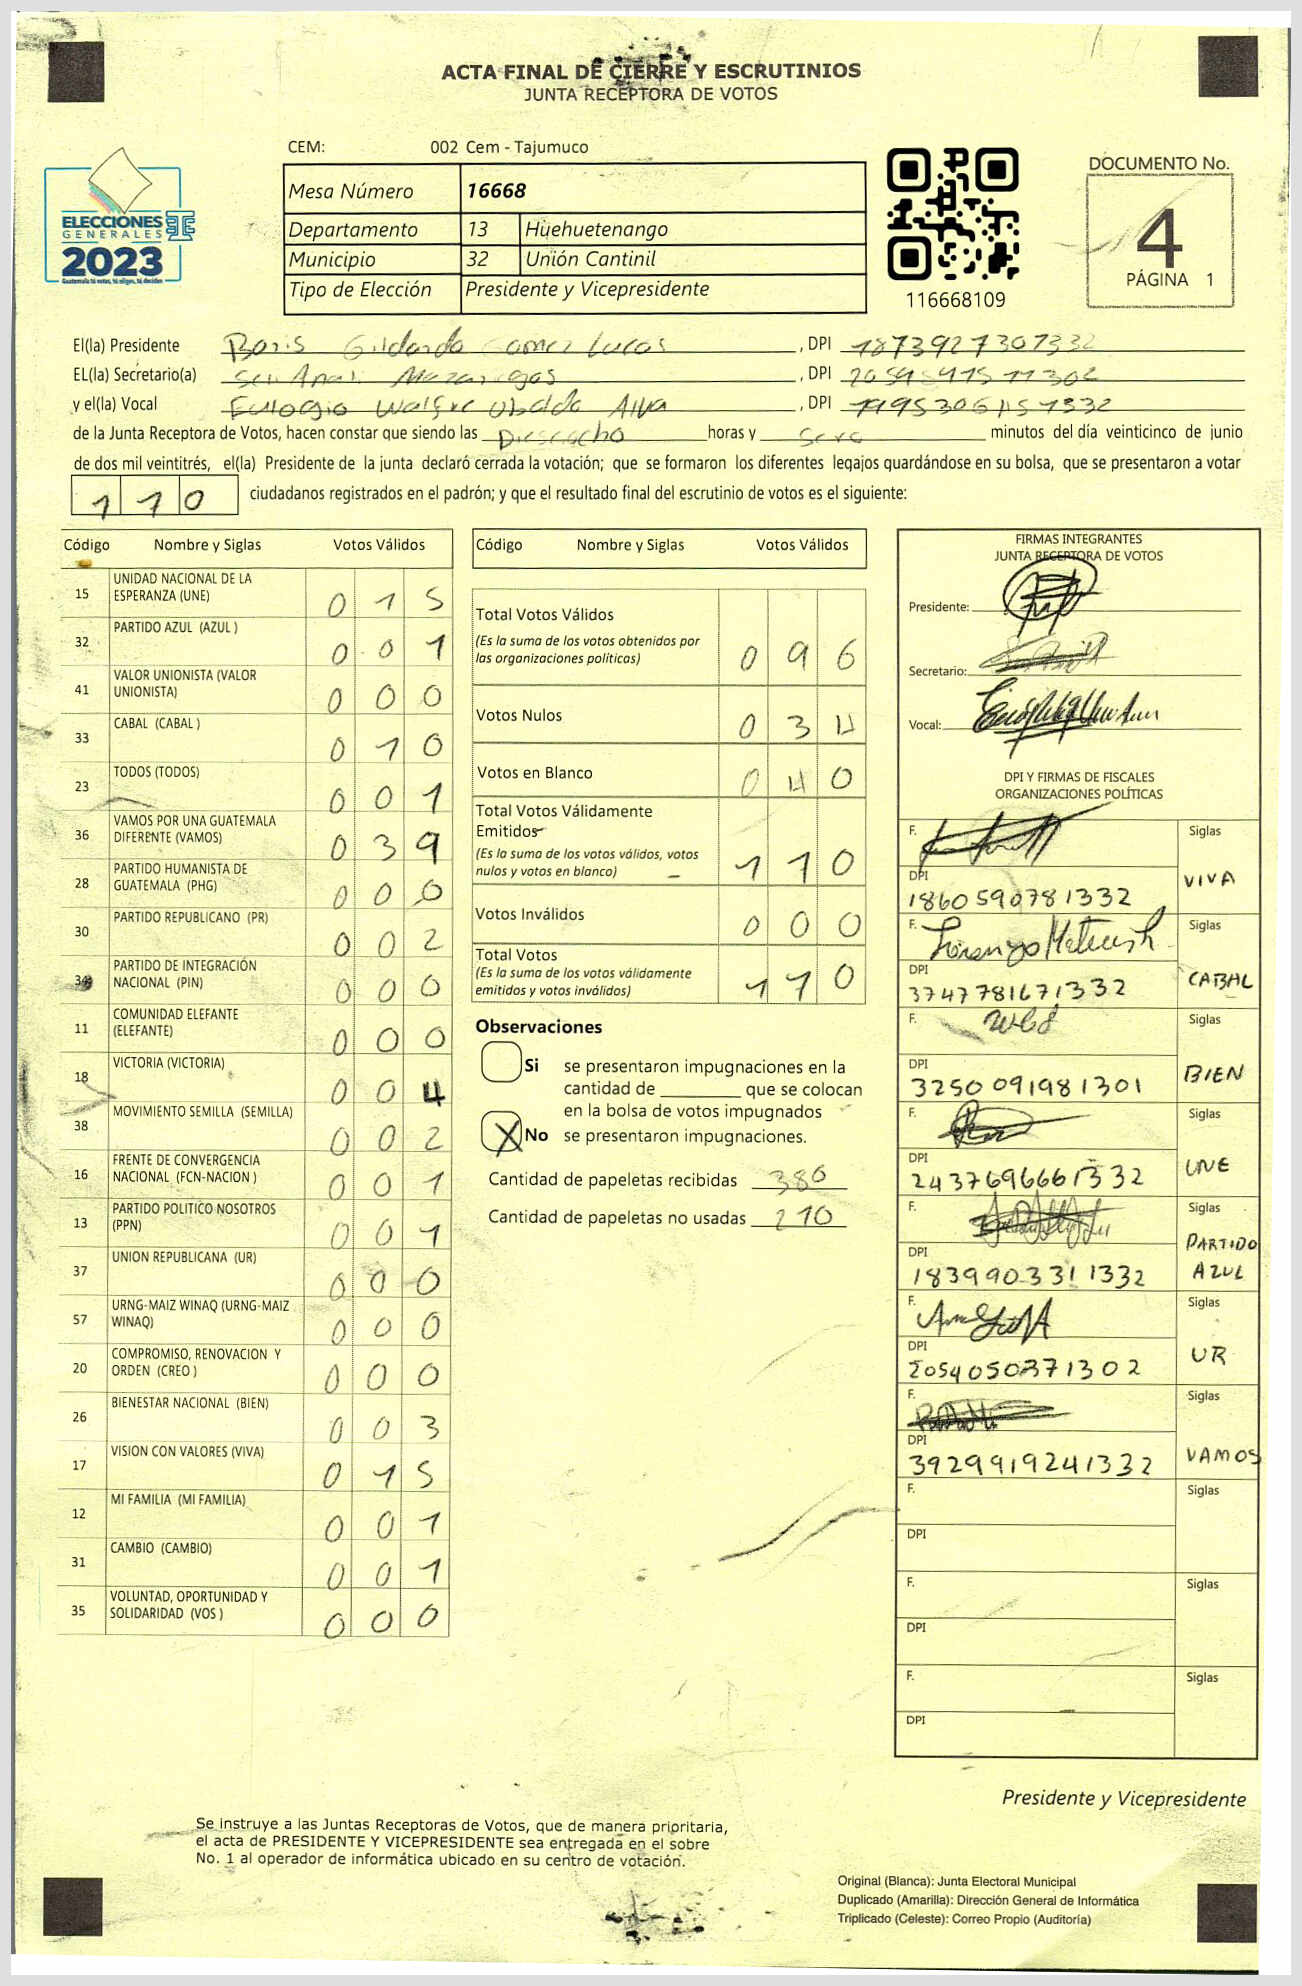 ACTA FINAL DE CIERRE Y ESCRUTINIOS
JUNTA RECEPTORA DE VOTOS
CEM: 002 Cem - Tajumuco
Mesa Número 16668
Departamento 13 Huehuetenango
Municipio 32 Unión Cantinil
Tipo de Elección Presidente y Vicepresidente
ELECCIONES
GENERALES
2023
Guatemala tú votas, tú eliges, tú decides
116668109
DOCUMENTO No.
4
PÁGINA 1
El(la) Presidente Boris Gildardo Gomez Lucas , DPI 1873927307332
EL(la) Secretario(a) Mazariegos , DPI
y el(la) Vocal Eulogio Walfre Ubaldo Alva , DPI
de la Junta Receptora de Votos, hacen constar que siendo las Dieciocho horas y Sero minutos del día veinticinco de junio
de dos mil veintitrés, el(la) Presidente de la junta declaró cerrada la votación; que se formaron los diferentes legajos quardándose en su bolsa, que se presentaron a votar
110 ciudadanos registrados en el padrón; y que el resultado final del escrutinio de votos es el siguiente:
Código Nombre y Siglas Votos Válidos
15 UNIDAD NACIONAL DE LA ESPERANZA (UNE) 015
32 PARTIDO AZUL (AZUL ) 001
41 VALOR UNIONISTA (VALOR UNIONISTA) 000
33 CABAL (CABAL ) 010
23 TODOS (TODOS) 001
36 VAMOS POR UNA GUATEMALA DIFERENTE (VAMOS) 039
28 PARTIDO HUMANISTA DE GUATEMALA (PHG) 000
30 PARTIDO REPUBLICANO (PR) 002
34 PARTIDO DE INTEGRACIÓN NACIONAL (PIN) 000
11 COMUNIDAD ELEFANTE (ELEFANTE) 000
18 VICTORIA (VICTORIA) 004
38 MOVIMIENTO SEMILLA (SEMILLA) 002
16 FRENTE DE CONVERGENCIA NACIONAL (FCN-NACION ) 001
13 PARTIDO POLITICO NOSOTROS (PPN) 001
37 UNION REPUBLICANA (UR) 000
57 URNG-MAIZ WINAQ (URNG-MAIZ WINAQ) 000
20 COMPROMISO, RENOVACION Y ORDEN (CREO ) 000
26 BIENESTAR NACIONAL (BIEN) 003
17 VISION CON VALORES (VIVA) 015
12 MI FAMILIA (MI FAMILIA) 001
31 CAMBIO (CAMBIO) 001
35 VOLUNTAD, OPORTUNIDAD Y SOLIDARIDAD (VOS ) 000
Código Nombre y Siglas Votos Válidos
Total Votos Válidos 096
(Es la suma de los votos obtenidos por
las organizaciones políticas)
Votos Nulos 034
Votos en Blanco 040
Total Votos Válidamente
Emitidos 110
(Es la suma de los votos válidos, votos
nulos y votos en blanco)
Votos Inválidos 000
Total Votos 110
(Es la suma de los votos válidamente
emitidos y votos inválidos)
Observaciones
Si se presentaron impugnaciones en la
cantidad de ________ que se colocan
en la bolsa de votos impugnados
X No se presentaron impugnaciones.
Cantidad de papeletas recibidas 380
Cantidad de papeletas no usadas 270
FIRMAS INTEGRANTES
JUNTA RECEPTORA DE VOTOS
Presidente:
Secretario:
Vocal:
DPI Y FIRMAS DE FISCALES
ORGANIZACIONES POLÍTICAS
F. Siglas
DPI VIVA
1860590781332
F. Lorenzo Siglas
DPI CABAL
3747781671332
F. Siglas
DPI BIEN
3250091981301
F. Siglas
DPI UNE
2437696661332
F. Siglas
DPI PARTIDO AZUL
1839903311332
F. Siglas
DPI UR
2054050371302
F. Siglas
DPI VAMOS
3929919241332
F. Siglas
DPI
F. Siglas
DPI
F. Siglas
DPI
Presidente y Vicepresidente
Se instruye a las Juntas Receptoras de Votos, que de manera prioritaria,
el acta de PRESIDENTE Y VICEPRESIDENTE sea entregada en el sobre
No. 1 al operador de informática ubicado en su centro de votación.
Original (Blanca): Junta Electoral Municipal
Duplicado (Amarilla): Dirección General de Informática
Triplicado (Celeste): Correo Propio (Auditoría)